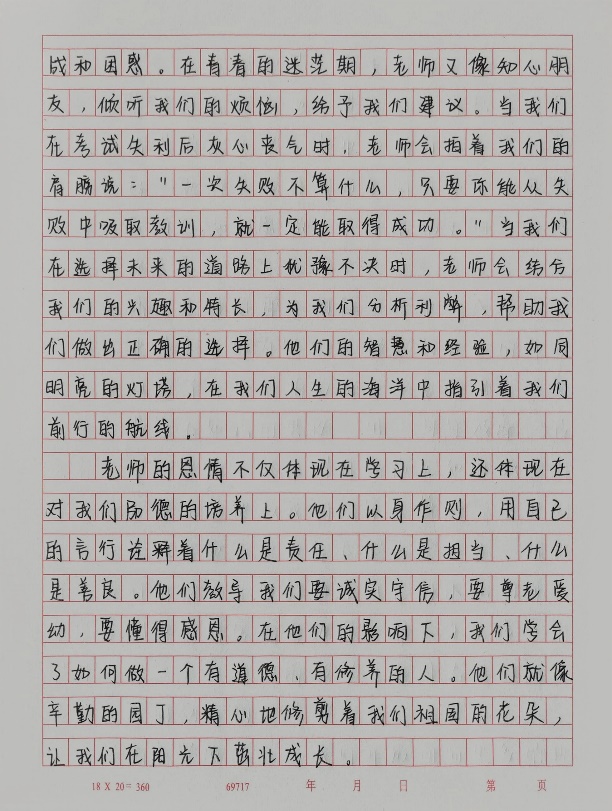 战和困惑。在青春的迷茫期，老师又像知心朋
友，倾听我们的烦恼，给予我们建议。当我们
在考试失利后灰心丧气时，老师会拍着我们的
肩膀说："一次失败不算什么，只要你能从失
败中吸取教训，就一定能取得成功。"当我们
在选择未来的道路上犹豫不决时，老师会结合
我们的兴趣和特长，为我们分析利弊，帮助我
们做出正确的选择。他们的智慧和经验，如同
明亮的灯塔，在我们人生的海洋中指引着我们
前行的航线。
老师的恩情不仅体现在学习上，还体现在
对我们品德的培养上。他们以身作则，用自己
的言行诠释着什么是责任、什么是担当、什么
是善良。他们教导我们要诚实守信，要尊老爱
幼，要懂得感恩。在他们的影响下，我们学会
了如何做一个有道德、有修养的人。他们就像
辛勤的园丁，精心地修剪着我们祖国的花朵，
让我们在阳光下茁壮成长。
18 X 20 = 360 69717 年 月 日 第 页